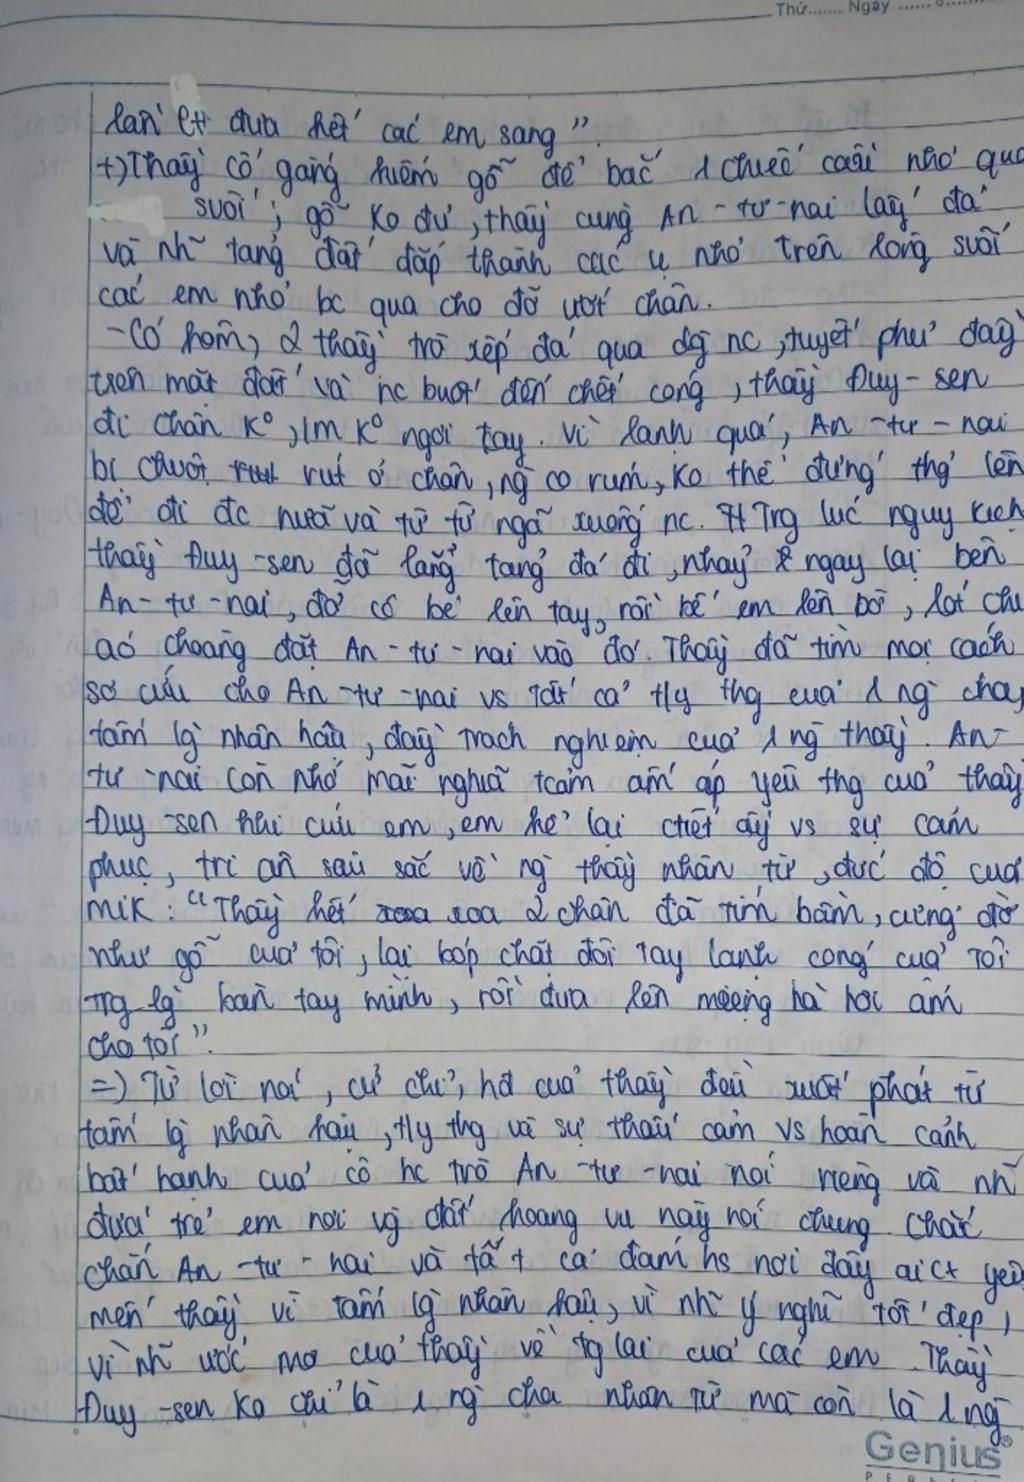 Thứ....... Ngày ......
lần lượt đưa hết các em sang".
+) Thầy cố gắng kiếm gỗ để bắc 1 chiếc cầu nhỏ qua
suối; gỗ ko đủ, thầy cùng An-tư-nai lấy đá
và nh~ tảng đất đắp thành các ụ nhỏ trên lòng suối
các em nhỏ bc qua cho đỡ ướt chân.
- Có hôm, 2 thầy trò xếp đá qua dg nc, tuyết phủ đầy
trên mặt đất và nc buốt đến chết cóng, thầy Đuy-sen
đi chân ko, lm ko ngơi tay. Vì lạnh quá, An-tư-nai
bị chuột rút ở chân, ng co rúm, ko thể đứng thg lên
để đi đc nữa và từ từ ngã xuống nc. Trg lúc nguy kịch
thầy Đuy-sen đã lẳng tảng đá đi, nhảy ngay lại bên
An-tư-nai, đỡ cô bé lên tay, rồi bế em lên bờ, lót chiế
áo choàng đặt An-tư-nai vào đó. Thầy đã tìm mọi cách
sơ cứu cho An-tư-nai vs tất cả t/y thg của 1 ng cha,
tấm lg nhân hậu, đầy trách nghiệm của 1 ng thầy. An-
tư-nai còn nhớ mãi nghĩa tcảm ấm áp yêu thg của thầy
Đuy-sen khi cứu em, em kể lại ctiết ấy vs sự cảm
phục, tri ân sâu sắc về ng thầy nhân từ, đức độ của
mik: "Thầy hết xoa 2 chân đã tím bầm, cứng đờ
như gỗ của tôi, lại bóp chặt đôi tay lạnh cóng của tôi
trg lg bàn tay mình, rồi đưa lên miệng hà hơi ấm
cho tôi".
=) Từ lời nói, cử chỉ, hđ của thầy đều xuất phát từ
tấm lg nhân hậu, t/y thg và sự thấu cảm vs hoàn cảnh
bất hạnh của cô hc trò An-tư-nai nói riêng và nh~
đứa trẻ em nơi vg đất hoang vu này nói chung. Chắc
chắn An-tư-nai và tất cả đám hs nơi đây ai cx yêu
mến thầy vì tấm lg nhân hậu, vì nh~ ý nghĩ tốt đẹp,
vì nh~ ước mơ của thầy về tg lai của các em. Thầy
Đuy-sen ko chỉ là 1 ng cha nhân từ mà còn là 1 ng
Genius®